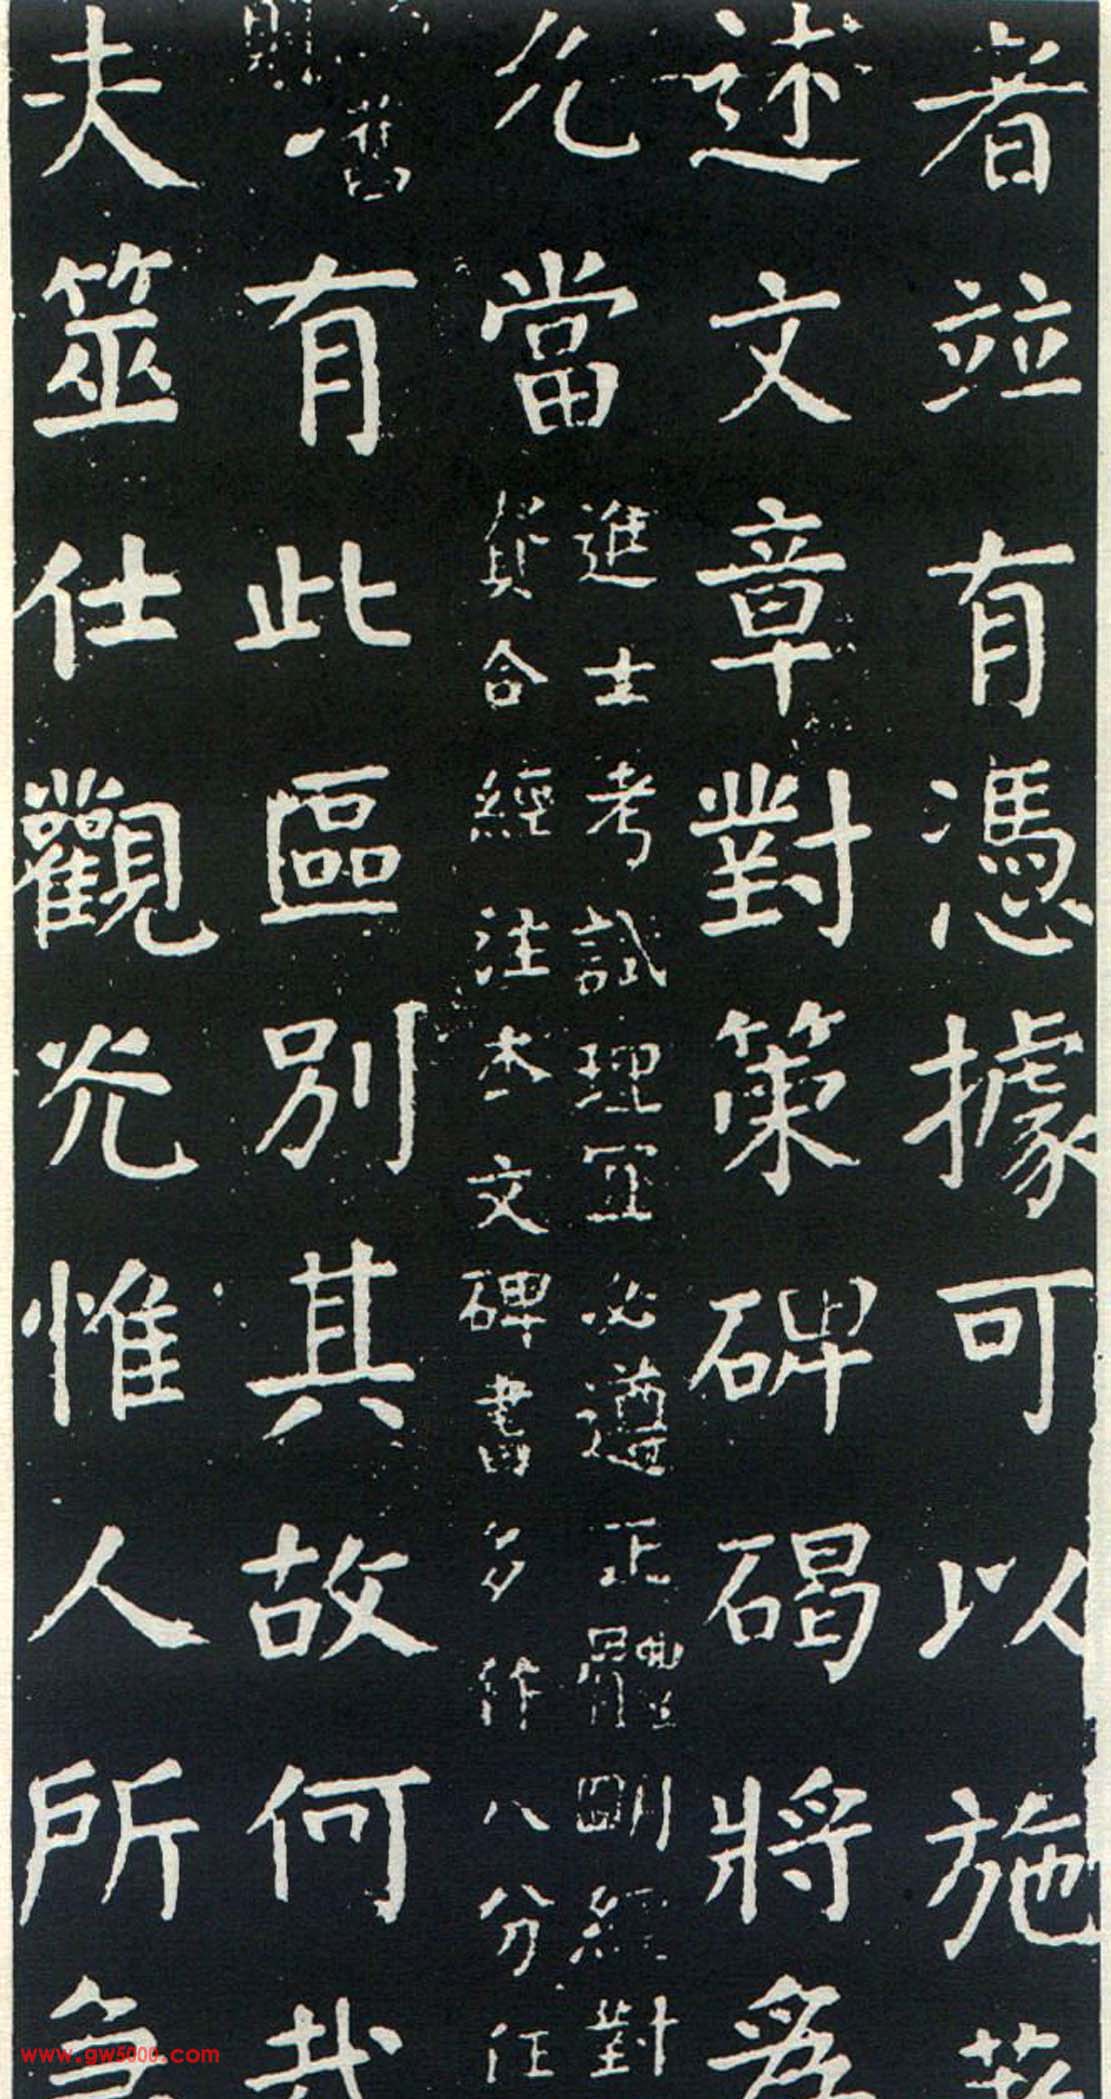 者竝有憑據可以施著
述文章對策碑碣將爲
允當
進士考試理宜必遵正體明經對
貴合經注本文碑書多作八分任
舊
則
有此區別其故何哉
夫筮仕觀光惟人所急
www.gw5000.com